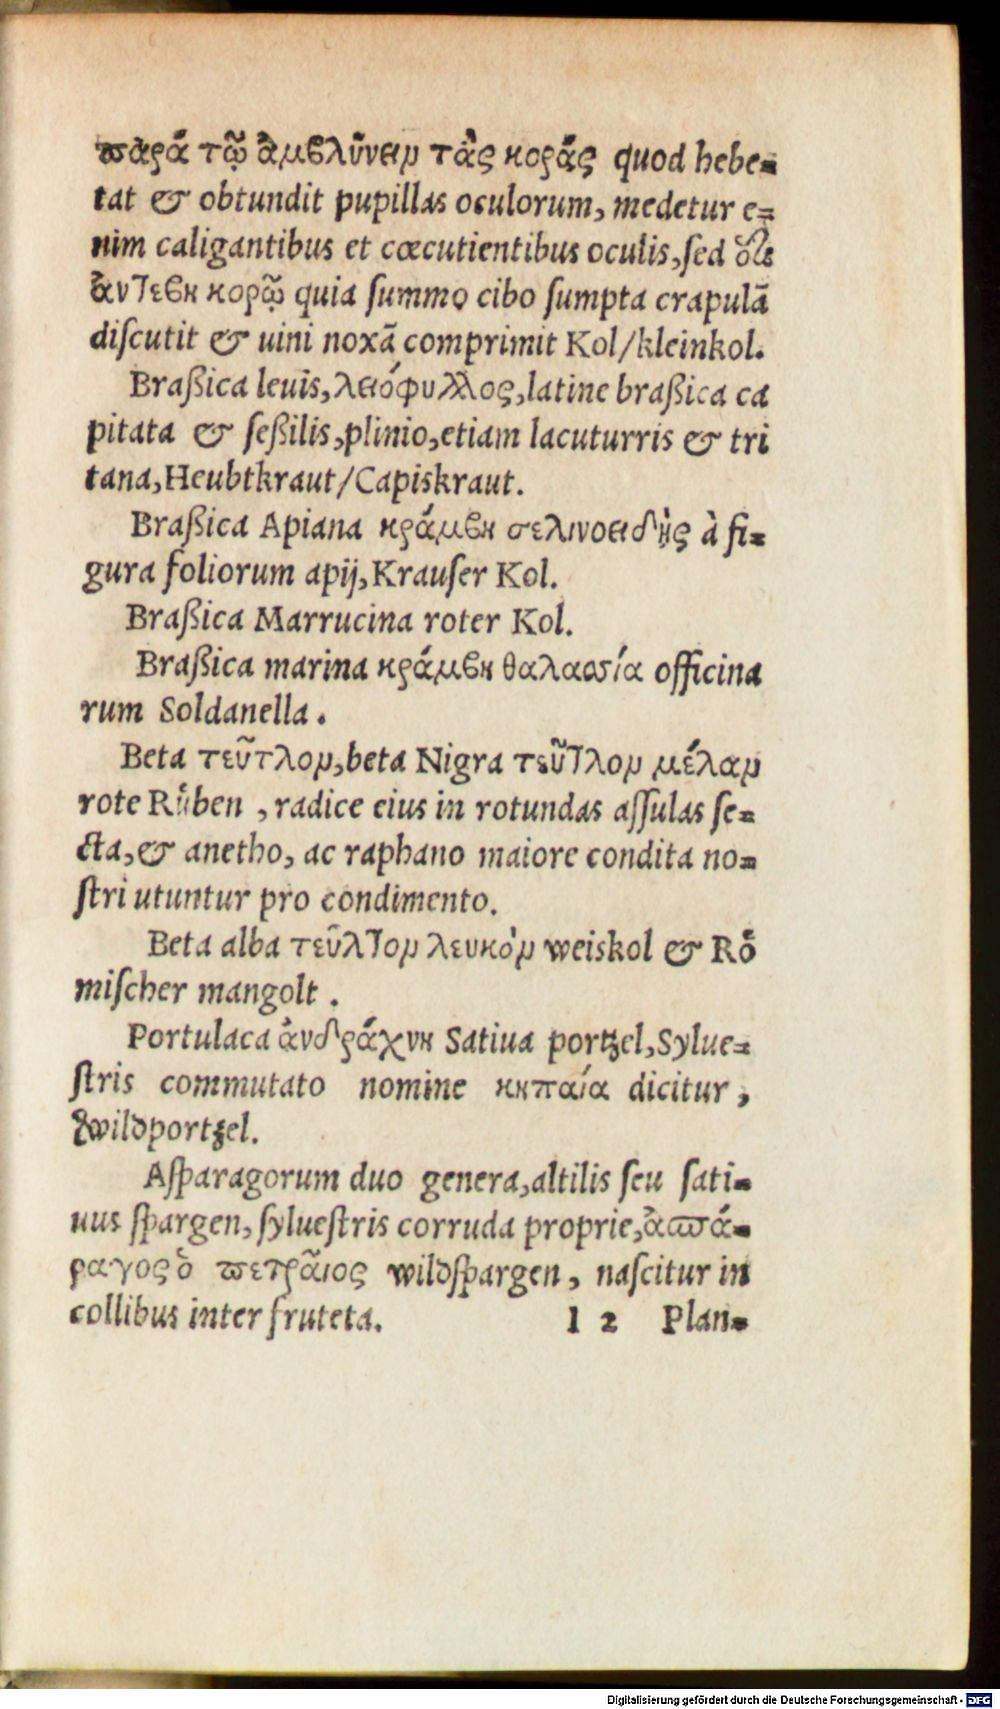 παρὰ τῷ ἀμβλύνειν τὰς κορὰς quod hebe=
tat & obtundit pupillas oculorum, medetur e=
nim caligantibus et cœcutientibus oculis, sed ὅτι
ἀντεβη κορῷ quia summo cibo sumpta crapulā
discutit & uini noxā comprimit Kol/kleinkol.
Braßica leuis, λειόφυλλος, latine braßica ca
pitata & seßilis, plinio, etiam lacuturris & tri
tana, Heubtkraut/Capiskraut.
Braßica Apiana κράμβη σελινοειδὴς à fi=
gura foliorum apij, Krauser Kol.
Braßica Marrucina roter Kol.
Braßica marina κράμβη θαλασσία officina
rum Soldanella.
Beta τεῦτλον, beta Nigra τεῦτλον μέλαν
rote Růben, radice eius in rotundas assulas se=
cta, & anetho, ac raphano maiore condita no=
stri utuntur pro condimento.
Beta alba τεῦλτον λευκὸν weiskol & Rö
mischer mangolt.
Portulaca ἀνδράχνη Satiua portzel, Sylue=
stris commutato nomine κηπαία dicitur,
wildportzel.
Asparagorum duo genera, altilis seu sati=
uus spargen, syluestris corruda proprie, ἀσπά=
ραγος ὁ πετραῖος wildspargen, nascitur in
collibus inter fruteta. l 2 Plan=
Digitalisierung gefördert durch die Deutsche Forschungsgemeinschaft - DFG